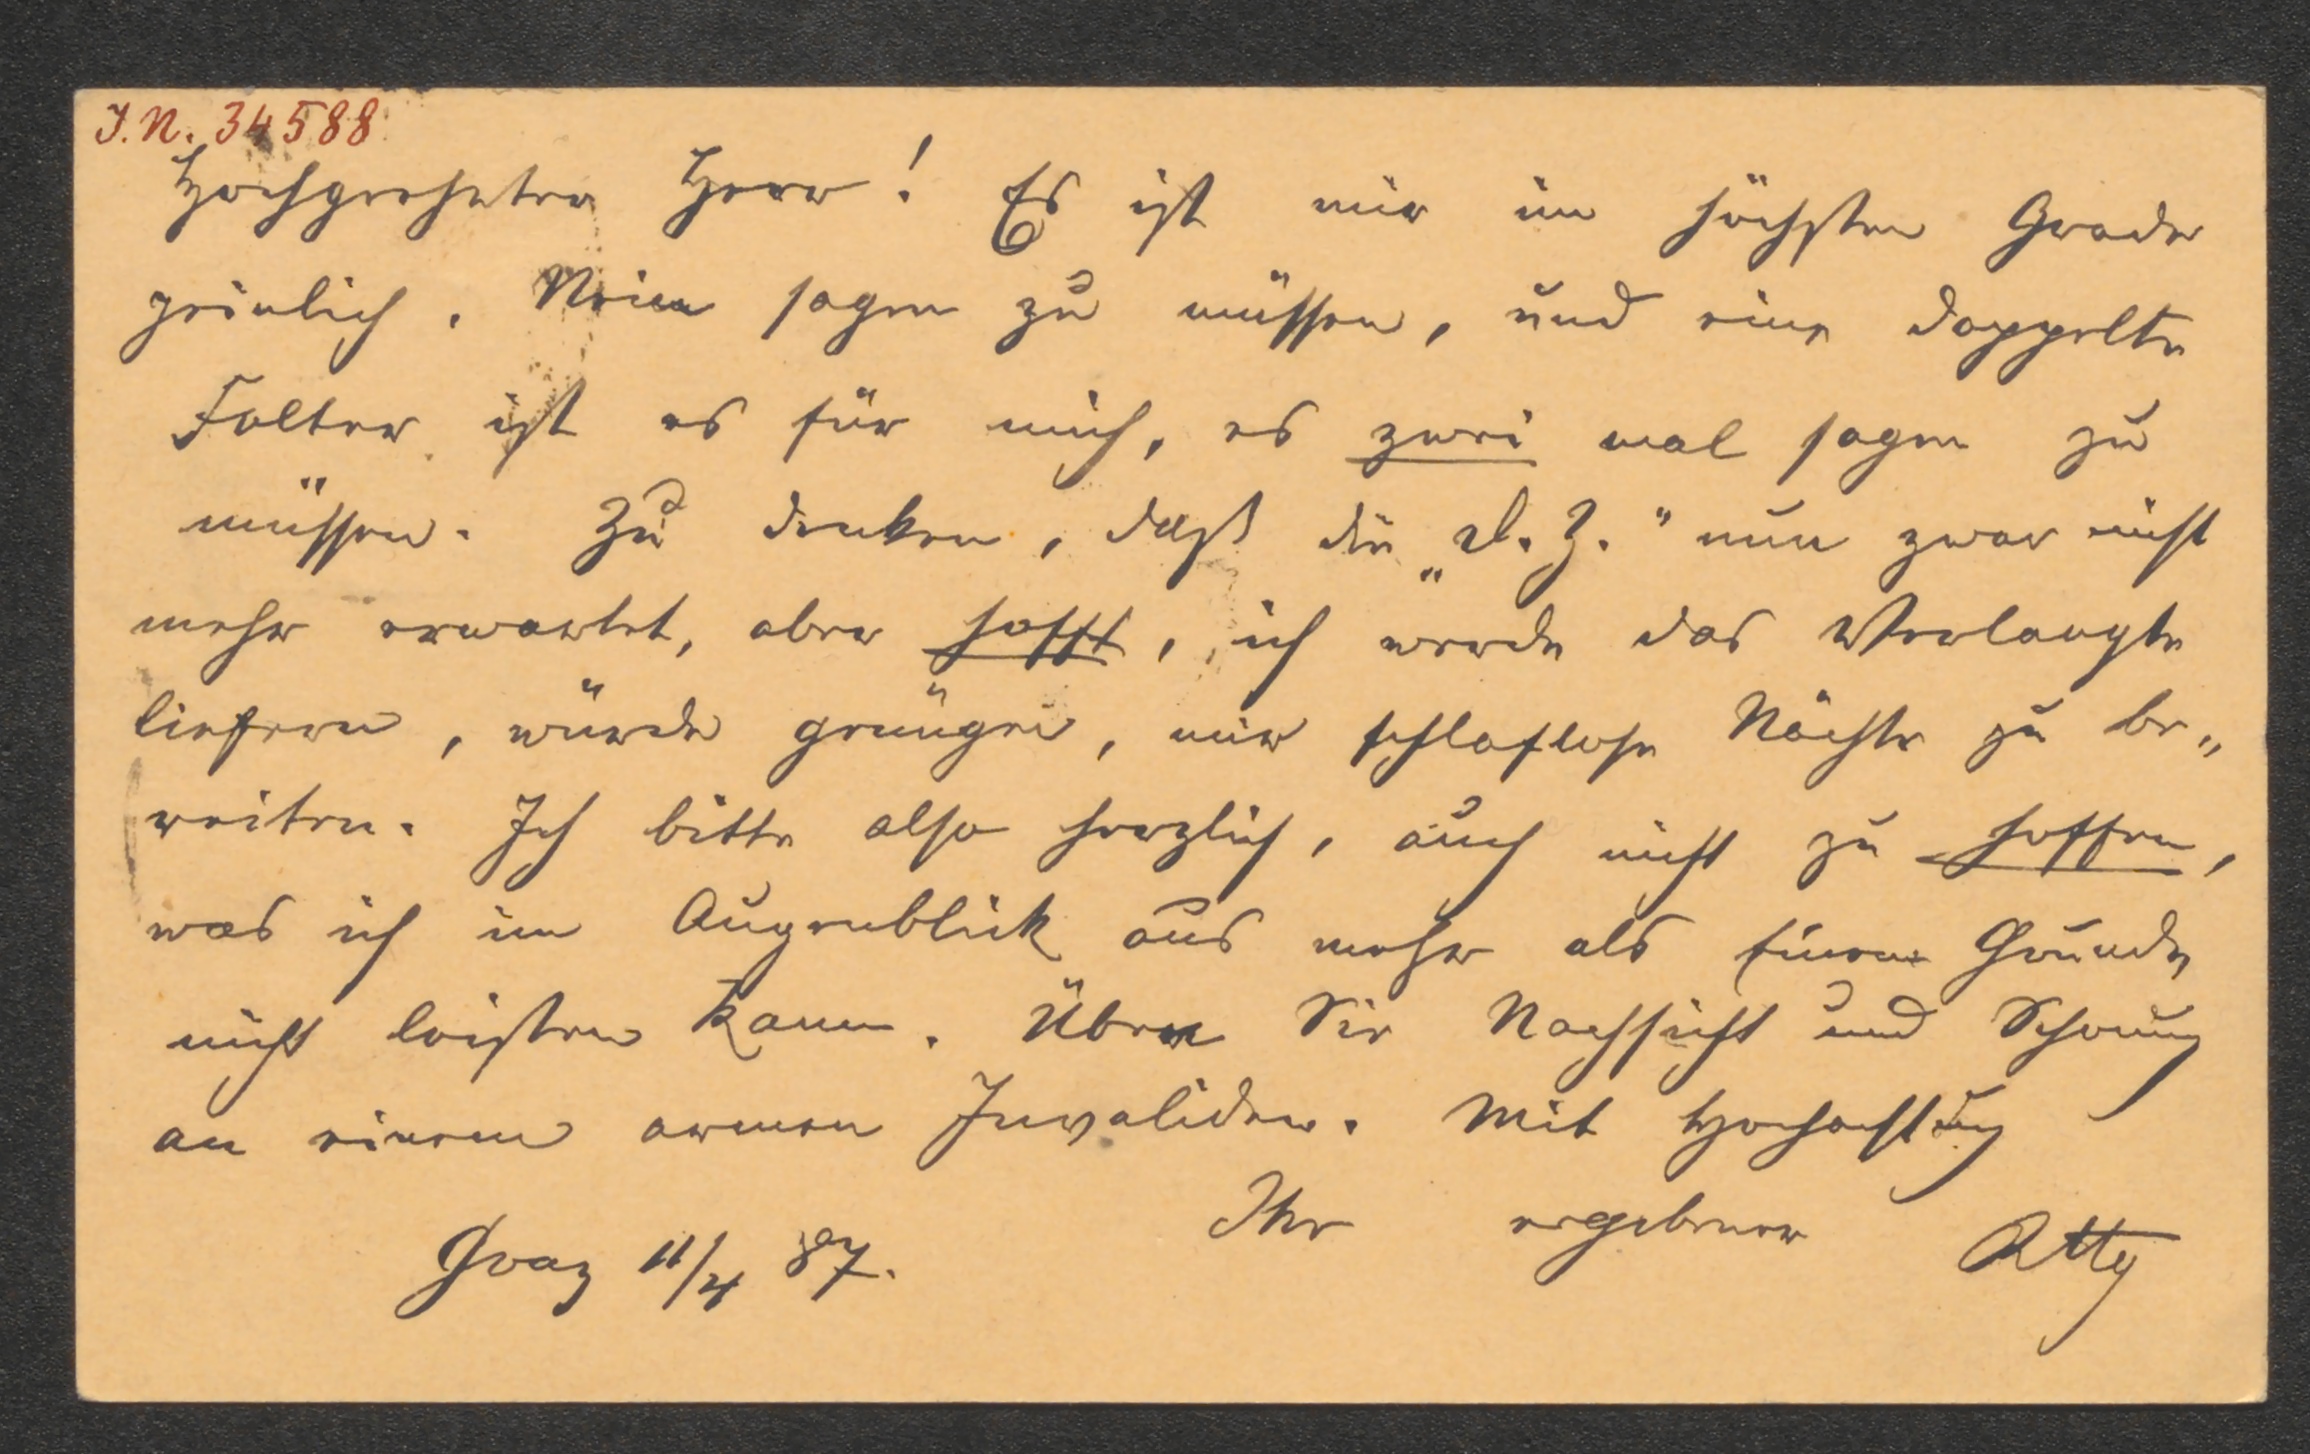 I.N. 34588
Hochgeehrter Herr! Es ist mir im höchsten Grade
peinlich. Nein sagen zu müssen, und eine doppelte
Folter ist es für mich, es zwei mal sagen zu
müssen. Zu denken, daß die „D. Z." nun zwar nicht
mehr erwartet, aber hofft, ich werde das Verlangte
liefern, würde genügen, mir schlaflose Nächte zu be„
reiten. Ich bitte also herzlich, auch nicht zu hoffen,
was ich im Augenblick aus mehr als Einem Grunde
nicht leisten kann. Üben Sie Nachsicht und Schonung
an einem armen Invaliden. Mit Hochachtung
Ihr ergebener
Graz 11/4 87.